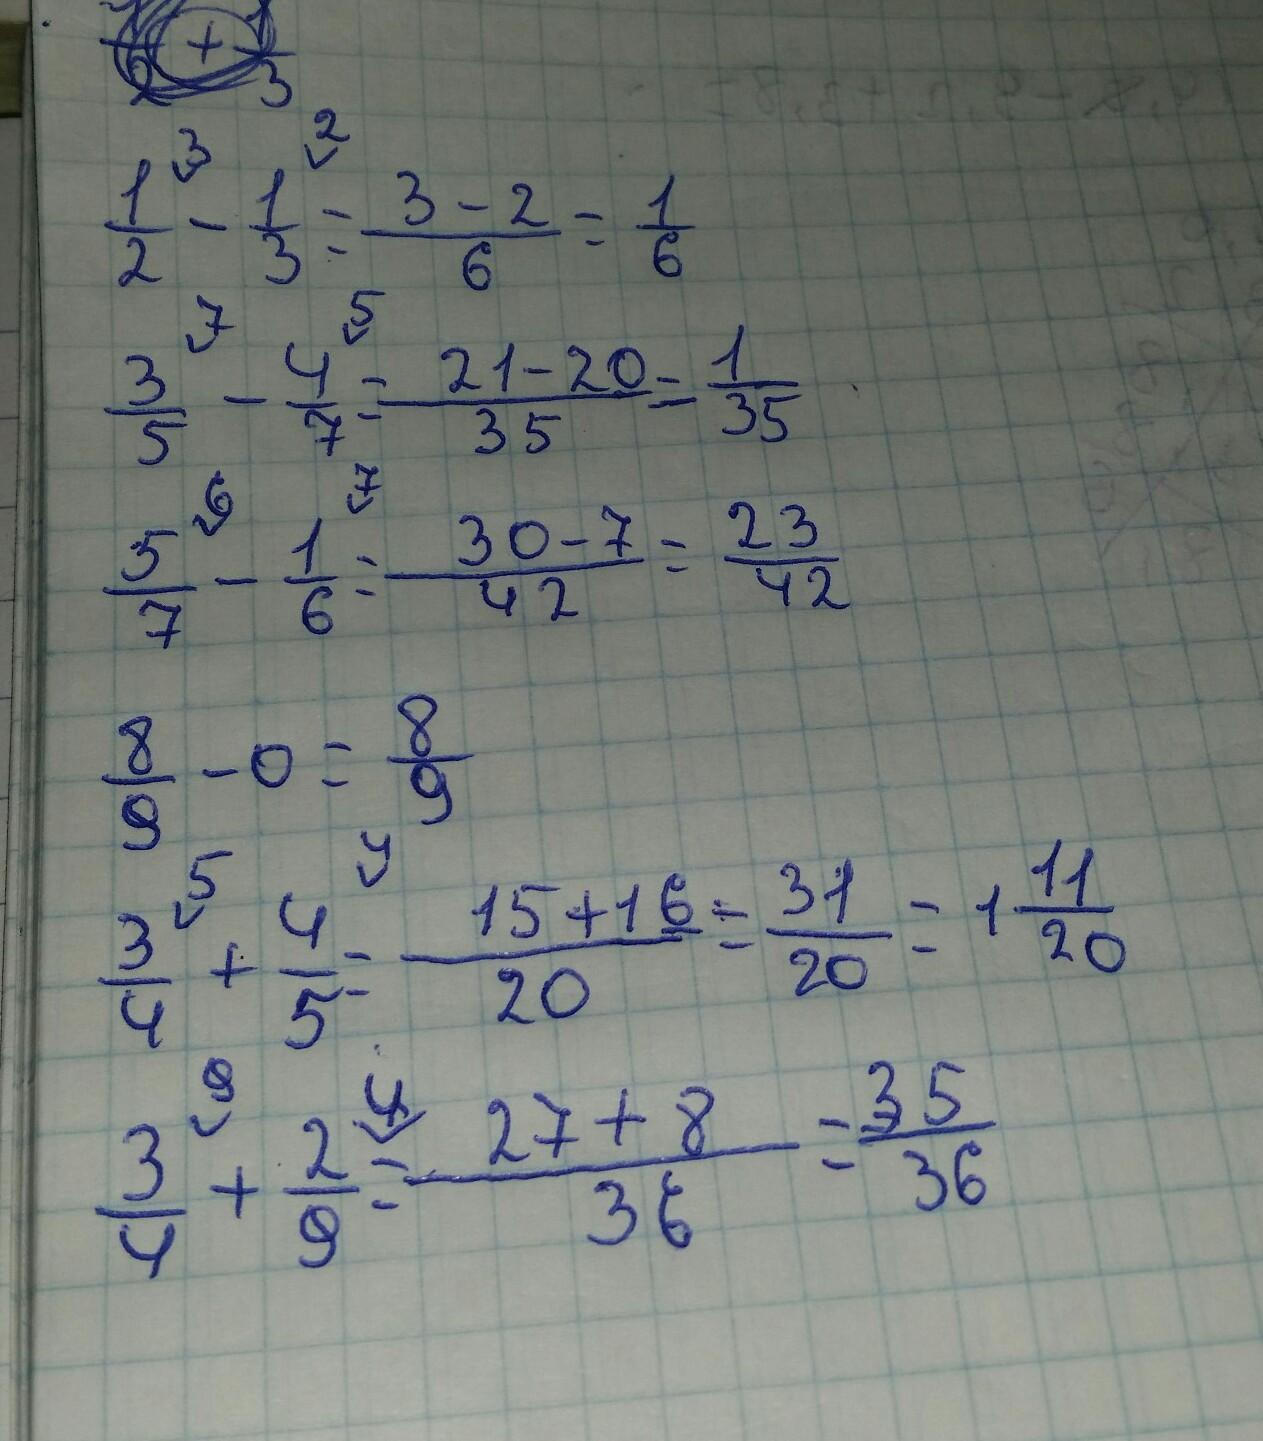 1/2 + 1/3
1/2 ³ - 1/3 ² = 3-2/6 = 1/6
3/5 ⁷ - 4/7 ⁵ = 21-20/35 = 1/35
5/7 ⁶ - 1/6 ⁷ = 30-7/42 = 23/42
8/9 - 0 = 8/9
3/4 ⁵ + 4/5 ⁴ = 15+16/20 = 31/20 = 1 11/20
3/4 ⁹ + 2/9 ⁴ = 27+8/36 = 35/36